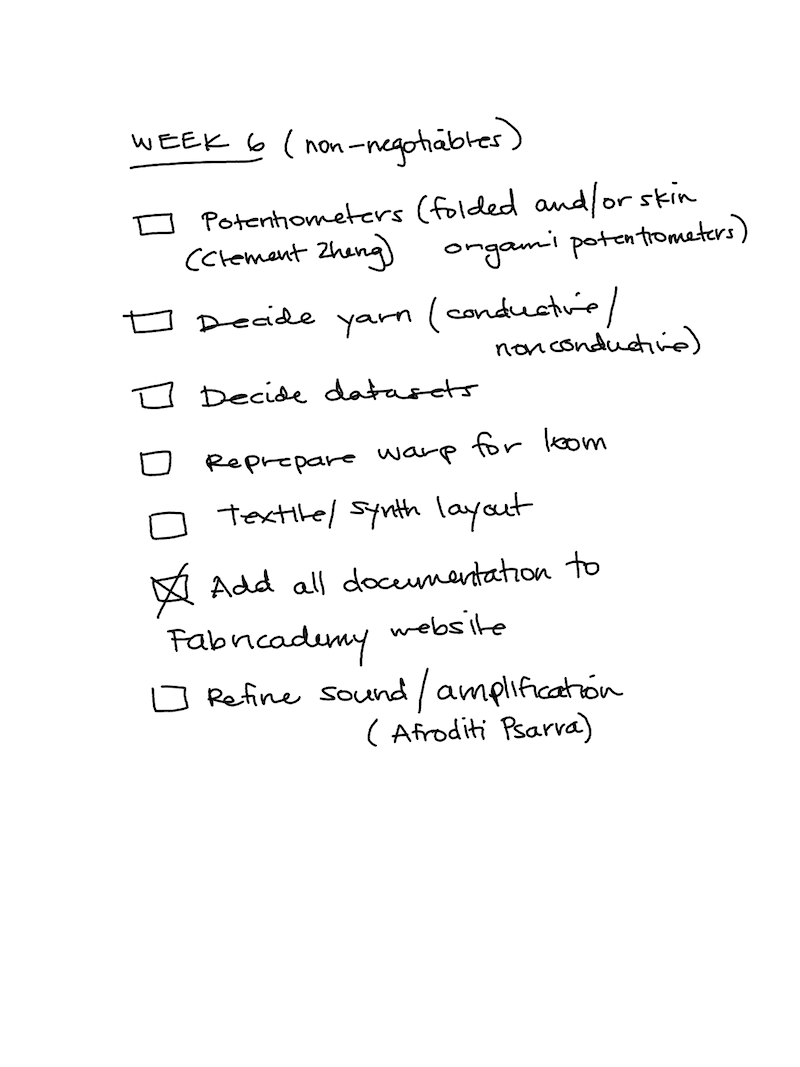 WEEK 6 (non-negotiables)
Potentiometers (folded and/or skin
(Clement Zheng) orgami potentiometers)
Decide yarn (conductive/
nonconductive)
Decide datasets
Reprepare warp for loom
Textile/ synth layout
Add all documentation to
Fabricademy website
Refine sound/amplification
(Afroditi Psarra)